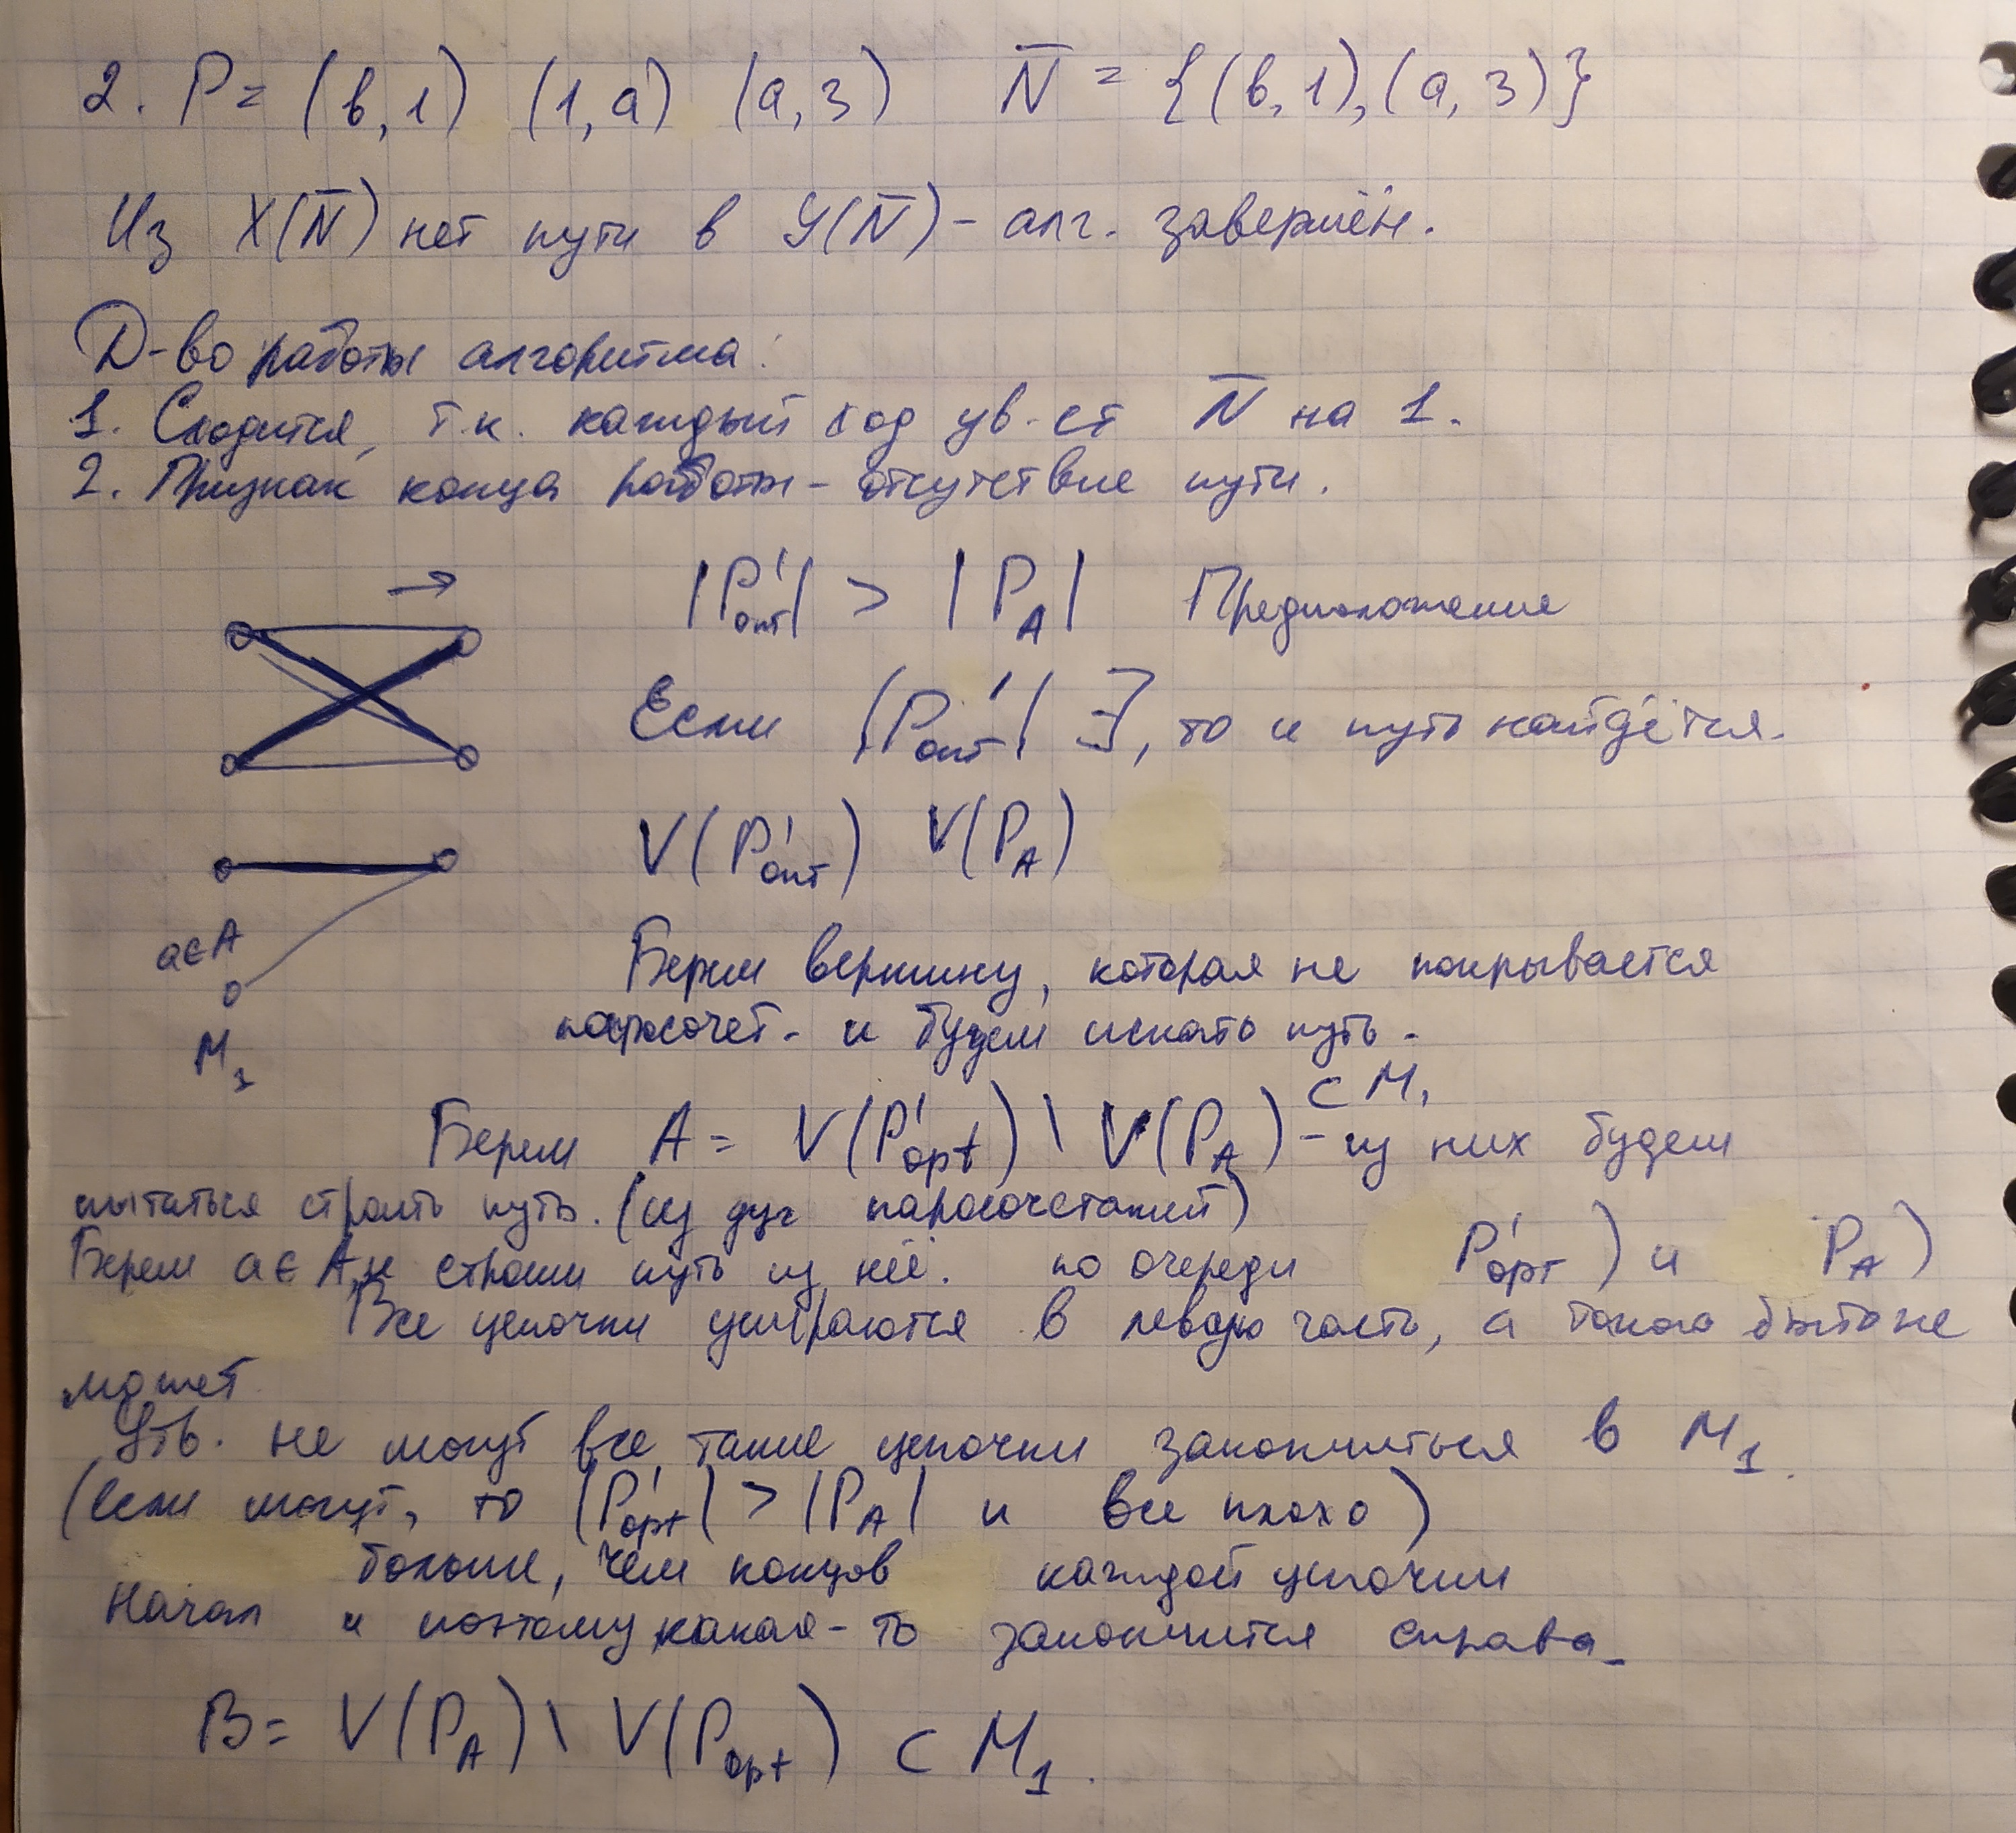 2. P = (в,1) (1,а) (а,3) N̄ = {(в,1),(а,3)}
Из X(N̄) нет пути в Y(N̄) - алг. завершён.
Д-во работы алгоритма:
1. Сходится, т.к. каждый ход ув-ет N̄ на 1.
2. Признак конца работы - отсутствие пути.
|P'опт| > |P_A| Предположение
Если |P'опт| ∃, то и путь найдётся.
V(P'опт) V(P_A)
a∈A
M₁
Берем вершину, которая не покрывается
паросочет. и будем искать путь.
⊂ M₁
Берем A = V(P'opt) \ V(P_A) - из них будем
пытаться строить путь. (из дуг паросочетаний)
Берем a∈A и строим путь из неё. по очереди P'opt) и P_A)
Все цепочки упираются в левую часть, а такого быть не
может
Утв. не могут все такие цепочки закончиться в M₁.
(если могут, то |P'opt| > |P_A| и все плохо)
больше, чем концов каждой цепочки
Начал и поэтому какая-то закончится справа.
B = V(P_A) \ V(P_opt) ⊂ M₁.